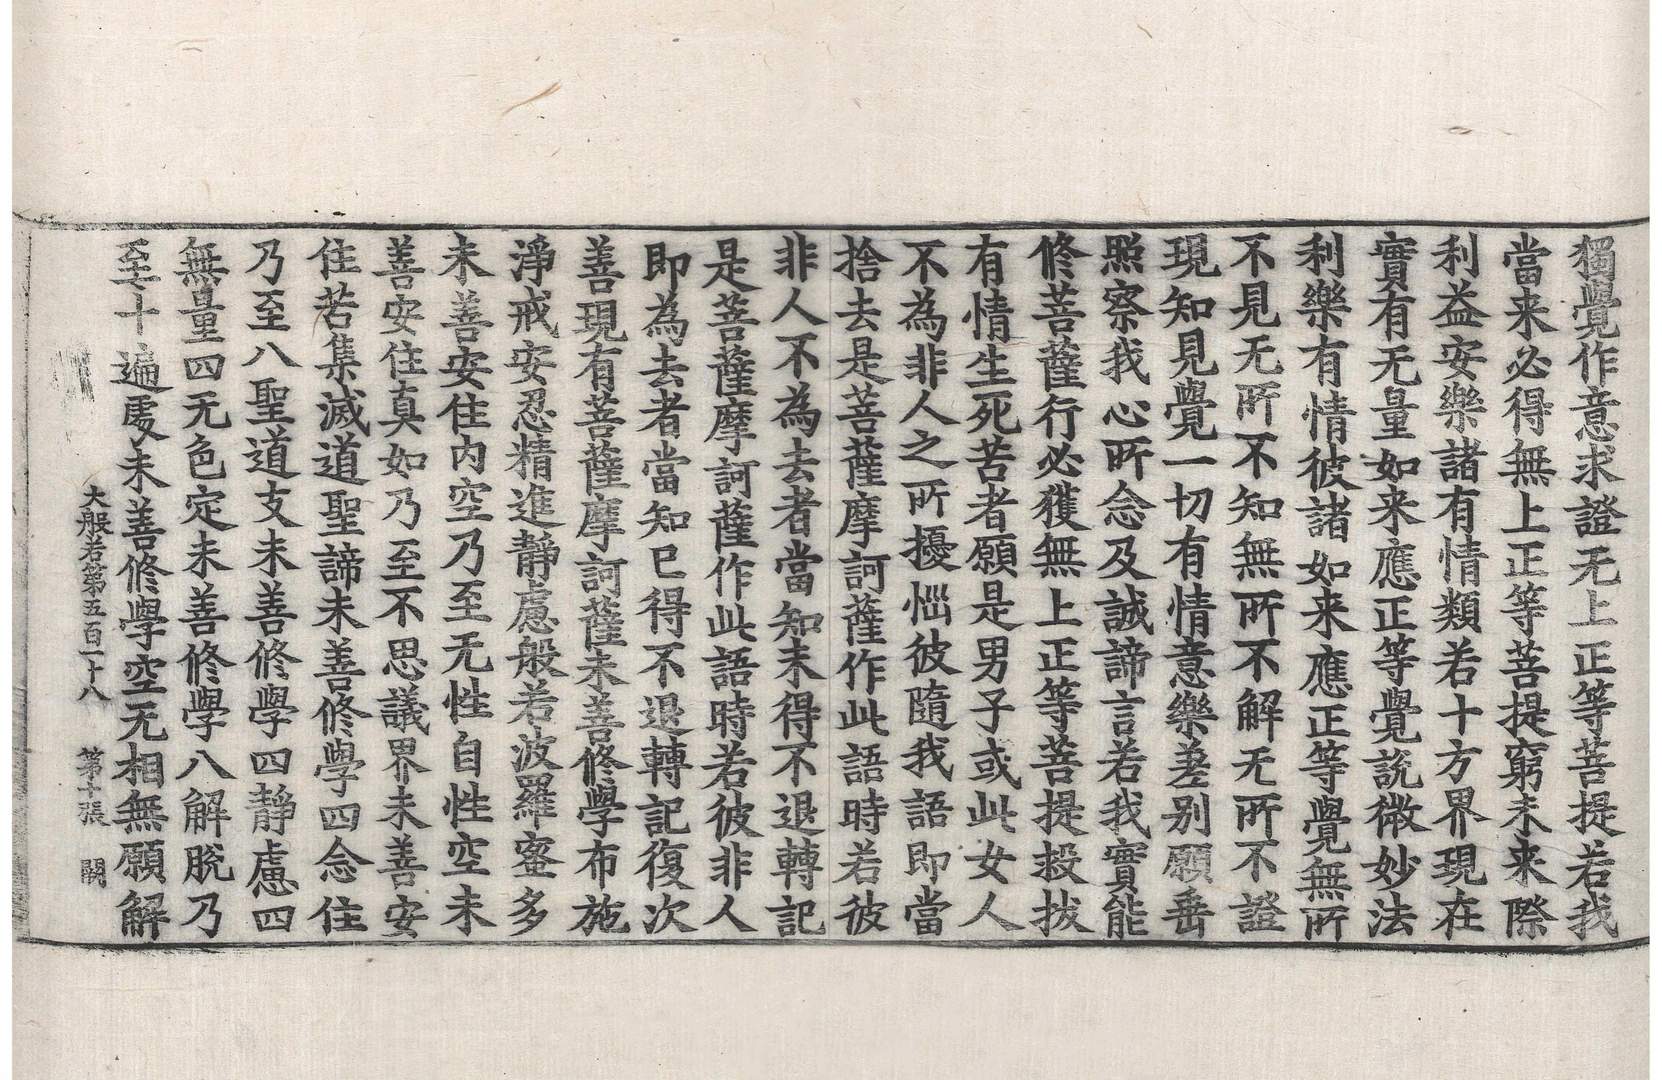 獨覺作意求證无上正等菩提若我
當来必得無上正等菩提窮未来際
利益安樂諸有情類若十方界現在
實有无量如来應正等覺說微妙法
利樂有情彼諸如来應正等覺無所
不見无所不知無所不解无所不證
現知見覺一切有情意樂差别願垂
照察我心所念及誠諦言若我實能
修菩薩行必獲無上正等菩提投拔
有情生死苦者願是男子或此女人
不為非人之所擾惱彼隨我語即當
捨去是菩薩摩訶薩作此語時若彼
非人不為去者當知未得不退轉記
是菩薩摩訶薩作此語時若彼非人
即為去者當知已得不退轉記復次
善現有菩薩摩訶薩未善修學布施
淨戒安忍精進靜慮般若波羅蜜多
未善安住内空乃至无性自性空未
善安住真如乃至不思議界未善安
住苦集滅道聖諦未善修學四念住
乃至八聖道支未善修學四靜慮四
無量四无色定未善修學八解脫乃
至十遍處未善修學空无相無願解
大般若第五百一十八　第十張　闕